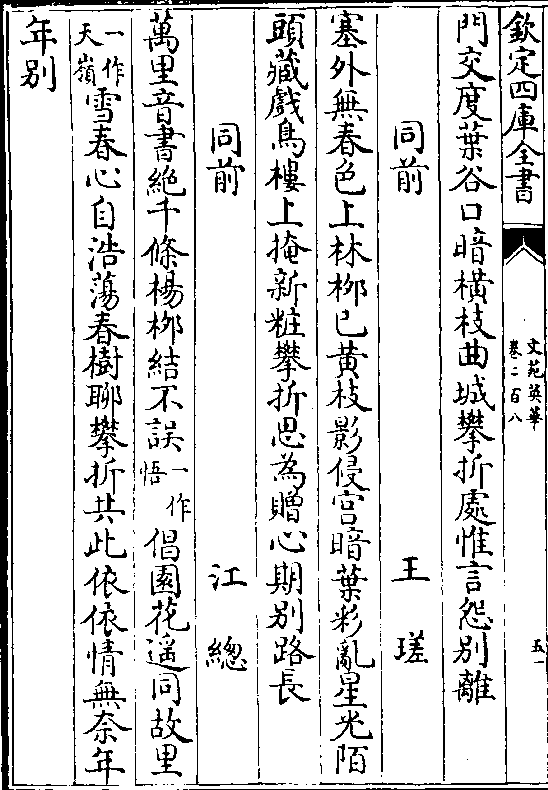 欽定四庫全書
文苑英華
卷二百八
五一
門交度葉谷口暗橫枝曲城攀折處惟言怨别離
同前 王瑳
塞外無春色上林柳已黃枝影侵宫暗葉彩亂星光陌
頭藏戲鳥樓上掩新粧攀折思為贈心期别路長
同前 江總
萬里音書絶千條楊柳結不誤一作悟倡園花遥同故里
一作天嶺雪春心自浩蕩春樹聊攀折共此依依情無奈年
年别